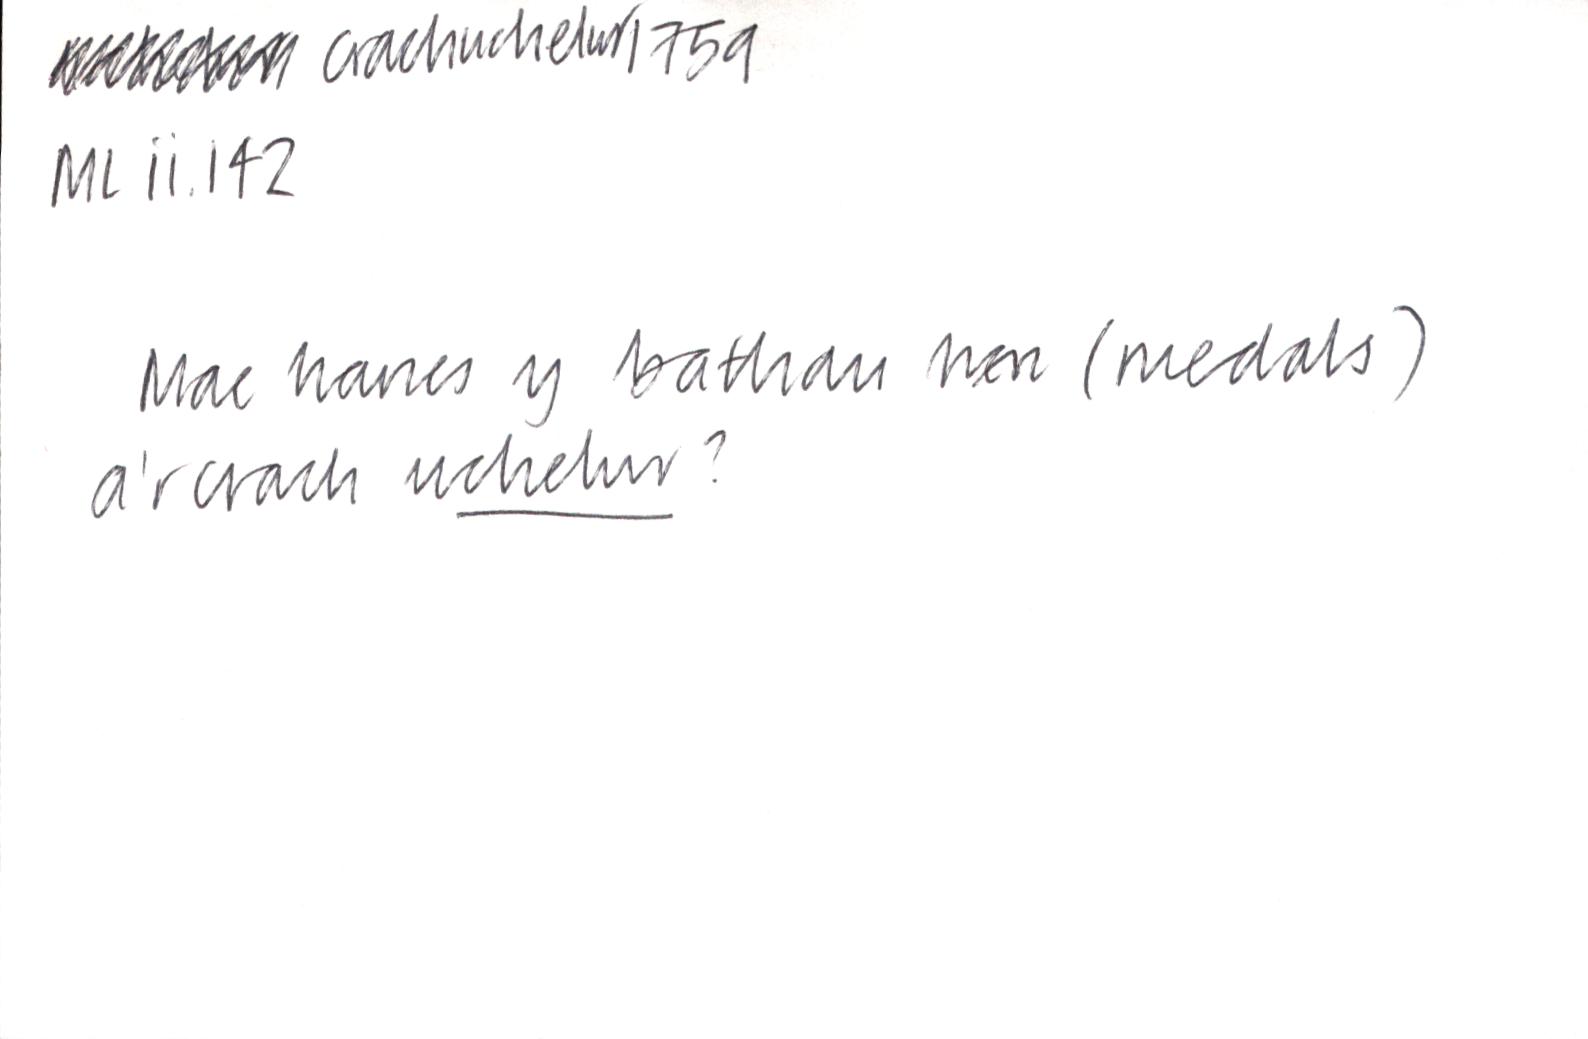 crachuchelwr 1759
ML ii.142
Mae hanes y bathau hen (medals)
a'r crach uchelwr?